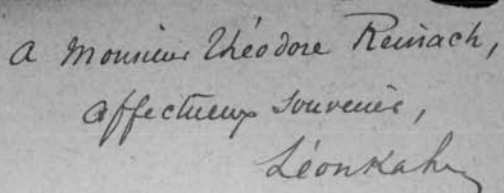 A Monsieur Théodore Reinach,
affectueux souvenir,
Léon Kahn